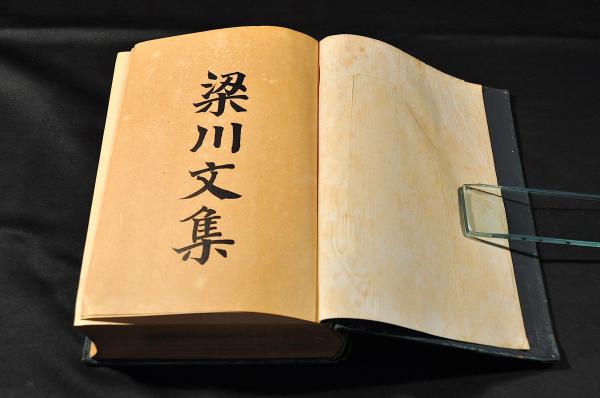 梁川文集